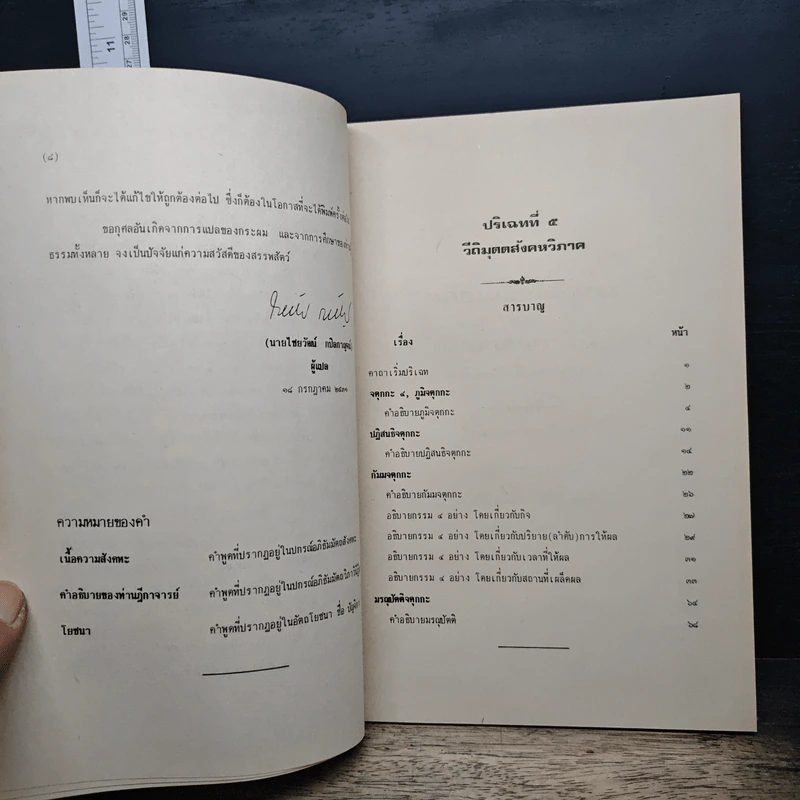 11
27 28 29
(๘)
หากพบเห็นก็จะได้แก้ไขให้ถูกต้องต่อไป ซึ่งก็ต้องในโอกาสที่จะได้พิมพ์ครั้ง
ขอกุศลอันเกิดจากการแปลของกระผม และจากการศึกษาของ
ธรรมทั้งหลาย จงเป็นปัจจัยแก่ความสวัสดีของสรรพสัตว์
(นายไชยวัฒน์ กปิลกาญจน์)
ผู้แปล
๑๘ กรกฎาคม ๒๕๓๑
ความหมายของคำ
เนื้อความสังคหะ คำพูดที่ปรากฏอยู่ในปกรณ์อภิธัมมัตถสังคหะ
คำอธิบายของท่านฎีกาจารย์ คำพูดที่ปรากฏอยู่ในปกรณ์อภิธัมมัตถวิภาวินี
โยชนา คำพูดที่ปรากฏอยู่ในอัตถโยชนา ชื่อ
ปริเฉทที่ ๕
วีถิมุตตสังคหวิภาค
สารบาญ
เรื่อง หน้า
คาถาเริ่มปริเฉท ๑
จตุกกะ ๔, ภูมิจตุกกะ ๒
คำอธิบายภูมิจตุกกะ ๔
ปฏิสนธิจตุกกะ ๑๑
คำอธิบายปฏิสนธิจตุกกะ ๑๔
กัมมจตุกกะ ๒๒
คำอธิบายกัมมจตุกกะ ๒๖
อธิบายกรรม ๔ อย่าง โดยเกี่ยวกับกิจ ๒๗
อธิบายกรรม ๔ อย่าง โดยเกี่ยวกับปริยาย(ลำดับ)การให้ผล ๒๙
อธิบายกรรม ๔ อย่าง โดยเกี่ยวกับเวลาที่ให้ผล ๓๑
อธิบายกรรม ๔ อย่าง โดยเกี่ยวกับสถานที่เผล็ดผล ๓๓
มรณุปัตติจตุกกะ ๖๔
คำอธิบายมรณุปัตติ ๖๘